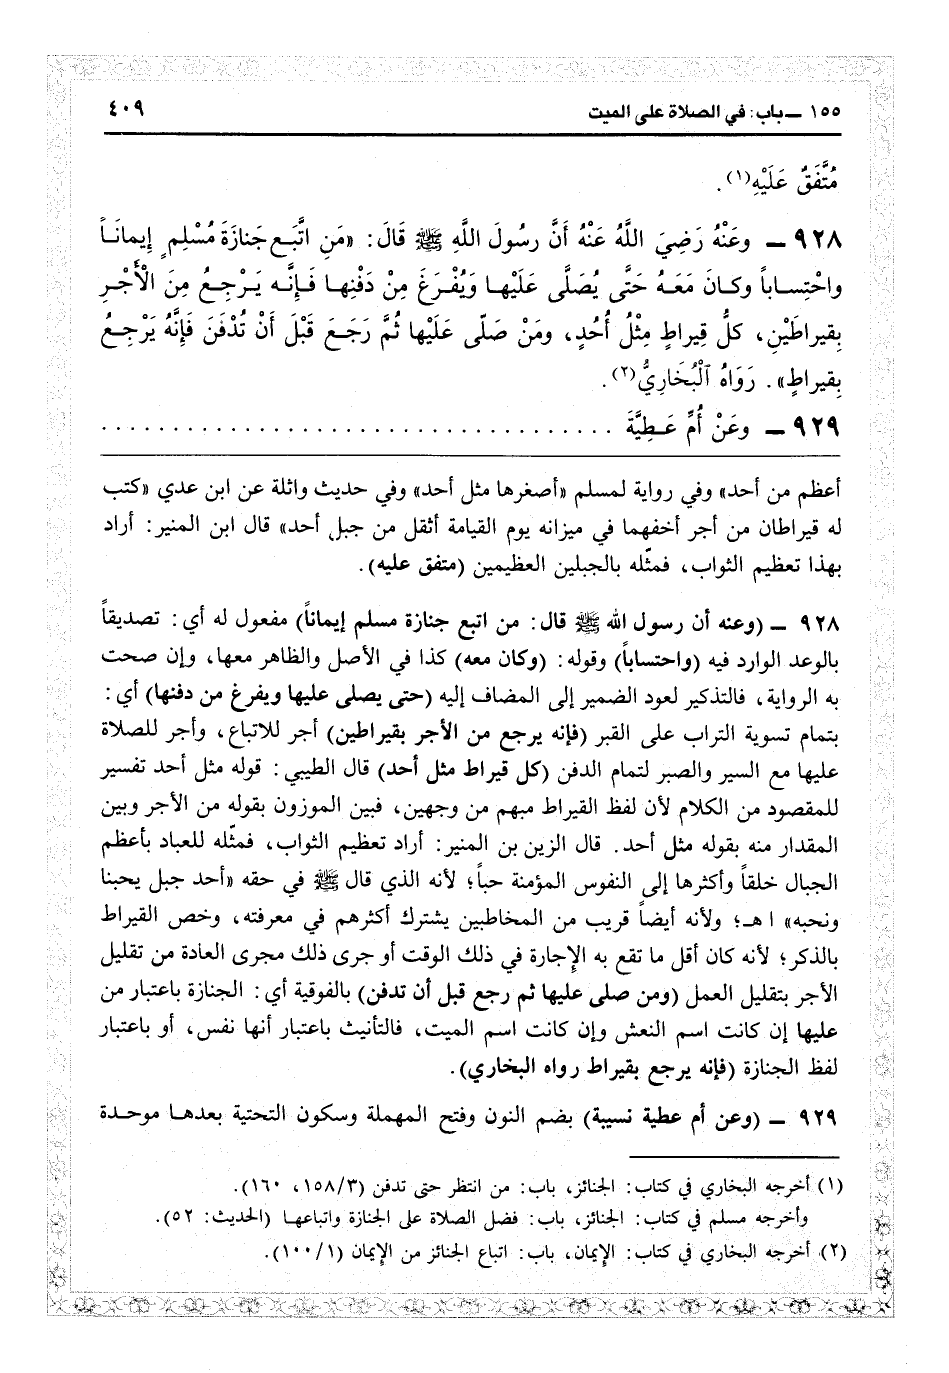 ١٥٥ ــ باب: في الصلاة على الميت
٤٠٩
مُتَّفَقٌ عَلَيْهِ(١).
٩٢٨ ــ وعَنْهُ رَضِيَ اللَّهُ عَنْهُ أَنَّ رسُولَ اللَّهِ ﷺ قَالَ: «مَنِ اتَّبَعَ جَنازَةَ مُسْلِمٍ إِيمَاناً
واحْتِساباً وكانَ مَعَهُ حَتَّى يُصَلَّى عَلَيْها وَيُفْرَغَ مِنْ دَفْنِها فَإِنَّه يَرْجِعُ مِنَ الْأَجْرِ
بِقيراطَيْنِ، كلُّ قِيراطٍ مِثْلُ أُحُدٍ، ومَنْ صَلّى عَلَيْها ثُمَّ رَجَعَ قَبْلَ أَنْ تُدْفَنَ فَإِنَّهُ يَرْجِعُ
بِقيراطٍ». رَوَاهُ ٱلْبُخَارِيُّ(٢).
٩٢٩ ــ وعَنْ أُمِّ عَطِيَّةَ .....................................
أعظم من أحد» وفي رواية لمسلم «أصغرها مثل أحد» وفي حديث واثلة عن ابن عدي «كتب
له قيراطان من أجر أخفهما في ميزانه يوم القيامة أثقل من جبل أحد» قال ابن المنير: أراد
بهذا تعظيم الثواب، فمثّله بالجبلين العظيمين (متفق عليه).
٩٢٨ ــ (وعنه أن رسول الله ﷺ قال: من اتبع جنازة مسلم إيماناً) مفعول له أي: تصديقاً
بالوعد الوارد فيه (واحتساباً) وقوله: (وكان معه) كذا في الأصل والظاهر معها، وإن صحت
به الرواية، فالتذكير لعود الضمير إلى المضاف إليه (حتى يصلى عليها ويفرغ من دفنها) أي:
بتمام تسوية التراب على القبر (فإنه يرجع من الأجر بقيراطين) أجر للاتباع، وأجر للصلاة
عليها مع السير والصبر لتمام الدفن (كل قيراط مثل أحد) قال الطيبي: قوله مثل أحد تفسير
للمقصود من الكلام لأن لفظ القيراط مبهم من وجهين، فبين الموزون بقوله من الأجر وبين
المقدار منه بقوله مثل أحد. قال الزين بن المنير: أراد تعظيم الثواب، فمثّله للعباد بأعظم
الجبال خلقاً وأكثرها إلى النفوس المؤمنة حباً؛ لأنه الذي قال ﷺ في حقه «أحد جبل يحبنا
ونحبه» ا هـ؛ ولأنه أيضاً قريب من المخاطبين يشترك أكثرهم في معرفته، وخص القيراط
بالذكر؛ لأنه كان أقل ما تقع به الإجارة في ذلك الوقت أو جرى ذلك مجرى العادة من تقليل
الأجر بتقليل العمل (ومن صلى عليها ثم رجع قبل أن تدفن) بالفوقية أي: الجنازة باعتبار من
عليها إن كانت اسم النعش وإن كانت اسم الميت، فالتأنيث باعتبار أنها نفس، أو باعتبار
لفظ الجنازة (فإنه يرجع بقيراط رواه البخاري).
٩٢٩ ــ (وعن أم عطية نسيبة) بضم النون وفتح المهملة وسكون التحتية بعدها موحدة
(١) أخرجه البخاري في كتاب: الجنائز، باب: من انتظر حتى تدفن (١٥٨/٣، ١٦٠).
وأخرجه مسلم في كتاب: الجنائز، باب: فضل الصلاة على الجنازة واتباعها (الحديث: ٥٢).
(٢) أخرجه البخاري في كتاب: الإيمان، باب: اتباع الجنائز من الإيمان (١٠٠/١).